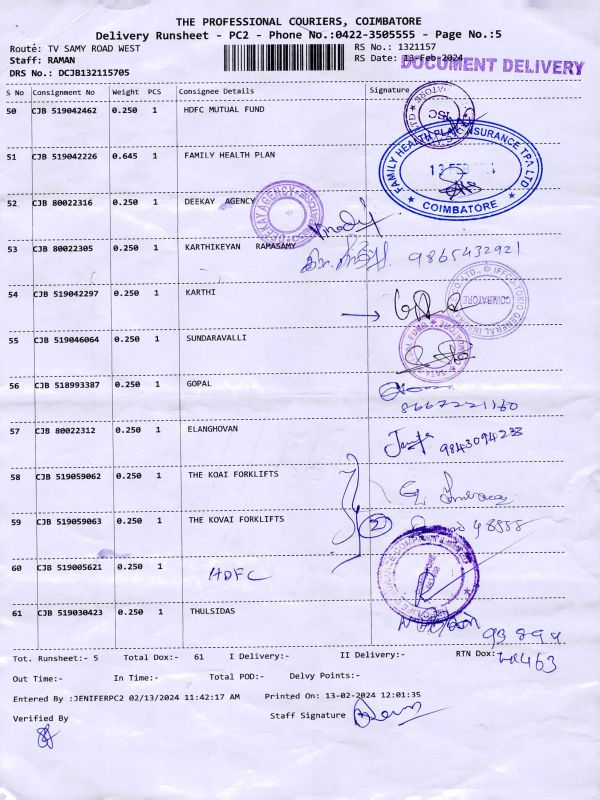 THE PROFESSIONAL COURIERS, COIMBATORE
Delivery Runsheet - PC2 - Phone No.:0422-3505555 - Page No.:5
Route: TV SAMY ROAD WEST RS No.: 1321157
Staff: RAMAN RS Date: 13-Feb-2024
DOCUMENT DELIVERY
DRS No.: DCJB132115705
S No Consignment No Weight PCS Consignee Details Signature
50 CJB 519042462 0.250 1 HDFC MUTUAL FUND
51 CJB 519042226 0.645 1 FAMILY HEALTH PLAN
FAMILY HEALTH PLAN INSURANCE TPA LTD
COIMBATORE
52 CJB 80022316 0.250 1 DEEKAY AGENCY
53 CJB 80022305 0.250 1 KARTHIKEYAN RAMASAMY 9865432921
54 CJB 519042297 0.250 1 KARTHI
IFFCO-TOKIO GENERAL
COIMBATORE
55 CJB 519046064 0.250 1 SUNDARAVALLI
56 CJB 518993387 0.250 1 GOPAL
8667221160
57 CJB 80022312 0.250 1 ELANGHOVAN 9843094233
58 CJB 519059062 0.250 1 THE KOAI FORKLIFTS
59 CJB 519059063 0.250 1 THE KOVAI FORKLIFTS 2
60 CJB 519005621 0.250 1 HDFC
61 CJB 519030423 0.250 1 THULSIDAS
Tot. Runsheet:- 5 Total Dox:- 61 I Delivery:- II Delivery:- RTN Dox:-
Out Time:- In Time:- Total POD:- Delvy Points:-
Entered By :JENIFERPC2 02/13/2024 11:42:17 AM Printed On: 13-02-2024 12:01:35
Verified By Staff Signature